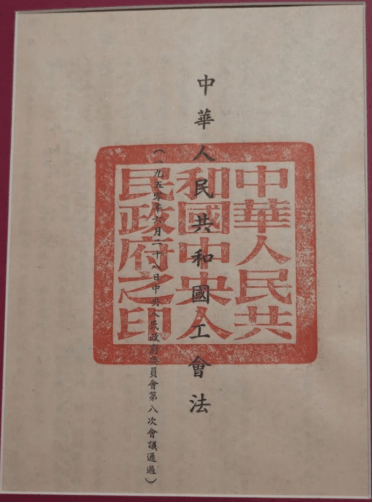 中華人民共和國工會法
(一九五零年六月二十八日中央人民政府委員會第八次會議通過)
中華人民共
和國中央人
民政府之印